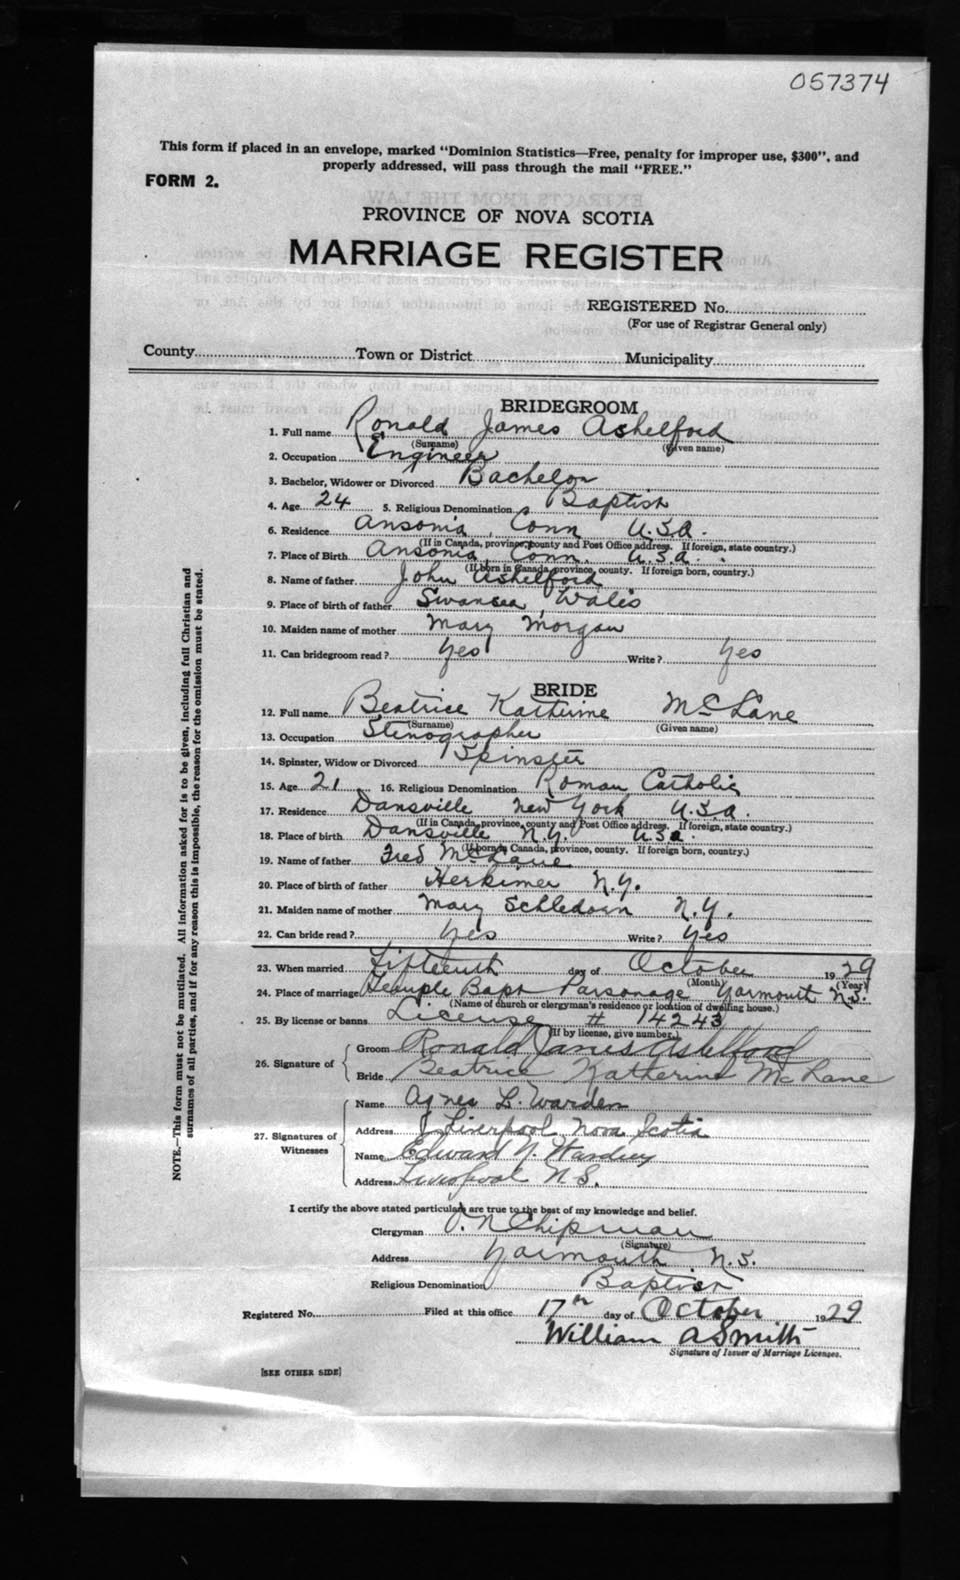 057374
This form if placed in an envelope, marked "Dominion Statistics—Free, penalty for improper use, $300", and
properly addressed, will pass through the mail "FREE."
FORM 2.
PROVINCE OF NOVA SCOTIA
MARRIAGE REGISTER
REGISTERED No.
(For use of Registrar General only)
County Town or District Municipality
BRIDEGROOM
1. Full name Ronald James Ashelford
(Surname) (Given name)
2. Occupation Engineer
3. Bachelor, Widower or Divorced Bachelor
4. Age 24 5. Religious Denomination Baptist
6. Residence Ansonia, Conn U.S.A.
(If in Canada, province, county and Post Office address. If foreign, state country.)
7. Place of Birth Ansonia, Conn. U.S.A.
(If born in Canada, province, county. If foreign born, country.)
8. Name of father John Ashelford
9. Place of birth of father Swansea, Wales
10. Maiden name of mother Mary Morgan
11. Can bridegroom read? Yes Write? Yes
BRIDE
12. Full name Beatrice Katherine McLane
(Surname) (Given name)
13. Occupation Stenographer
14. Spinster, Widow or Divorced Spinster
15. Age 21 16. Religious Denomination Roman Catholic
17. Residence Dansville New York U.S.A.
(If in Canada, province, county and Post Office address. If foreign, state country.)
18. Place of birth Dansville N.Y. U.S.A.
(If born in Canada, province, county. If foreign born, country.)
19. Name of father Fred McLane
20. Place of birth of father Herkimer N.Y.
21. Maiden name of mother Mary N.Y.
22. Can bride read? Yes Write? Yes
23. When married Fifteenth day of October 1929
(Month) (Year)
24. Place of marriage Temple Bapt Parsonage Yarmouth N.S.
(Name of church or clergyman's residence or location of dwelling house.)
25. By license or banns License # 14243
(If by license, give number.)
26. Signature of
Groom Ronald James Ashelford
Bride Beatrice Katherine McLane
27. Signatures of Witnesses
Name Agnes L. Warden
Address Liverpool Nova Scotia
Name Edward
Address Liverpool N.S.
I certify the above stated particulars are true to the best of my knowledge and belief.
Clergyman O. N Chipman
(Signature)
Address Yarmouth N.S.
Religious Denomination Baptist
Registered No. Filed at this office 17th day of October 1929
William A Smith
Signature of Issuer of Marriage Licenses.
[SEE OTHER SIDE]
NOTE.—This form must not be mutilated. All information asked for is to be given, including full Christian and
surnames of all parties, and if for any reason this is impossible, the reason for the omission must be stated.